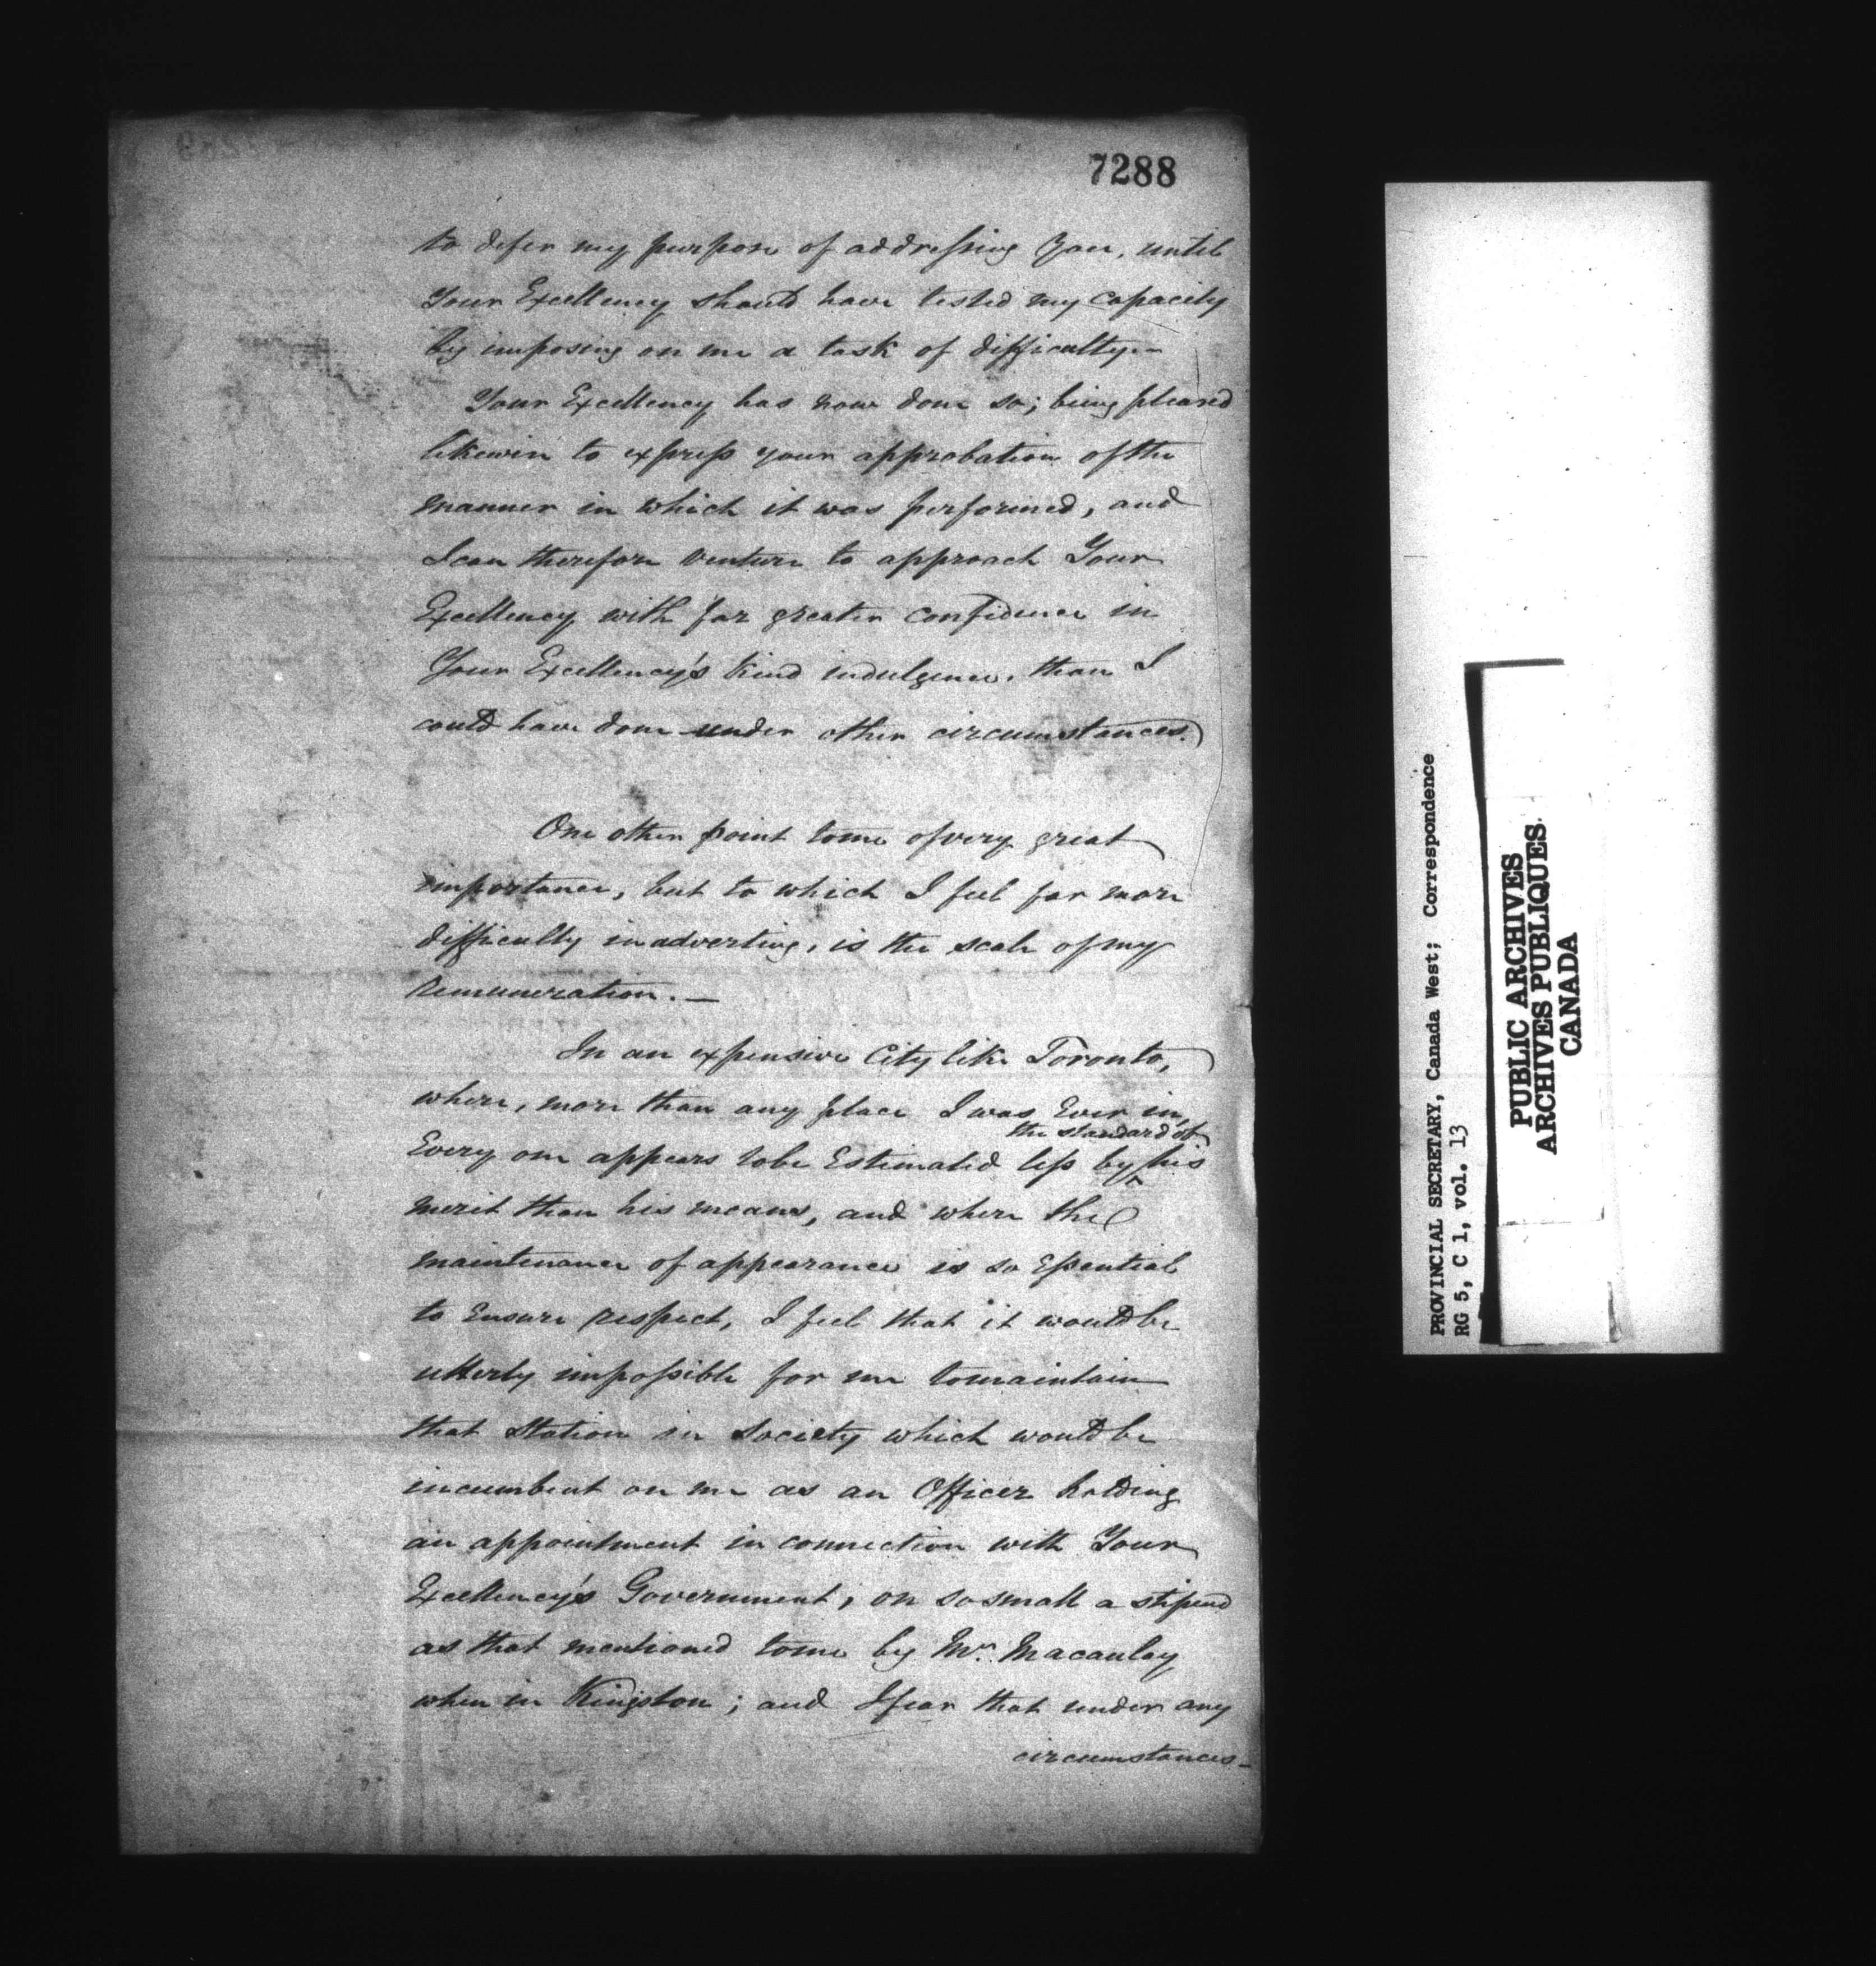 7288
to defer my purpose of addressing You, until
Your Excellency should have tested my capacity
by imposing on me a task of difficulty.—
Your Excellency has now done so; being pleased
likewise to express your approbation of the
manner in which it was performed, and
I can therefore venture to approach Your
Excellency with far greater confidence in
Your Excellency's kind indulgence, than I
could have done under other circumstances.
One other point to me of very great
importance, but to which I feel far more
difficulty in adverting, is the scale of my
remuneration.—
In an expensive City like Toronto,
where, more than any place I was Ever in,
the standard of
Every one appears to be Estimated less by ^ his
merit than his means, and where the
maintenance of appearance is so Essential
to Ensure respect, I feel that it would be
utterly impossible for me to maintain
that Station in Society which would be
incumbent on me as an Officer holding
an appointment in connection with Your
Excellency's Government, on so small a stipend
as that mentioned to me by Mr. Macaulay
when in Kingston; and I fear that under any
circumstances—
PROVINCIAL SECRETARY, Canada West; Correspondence
RG 5, C 1, vol. 13
PUBLIC ARCHIVES
ARCHIVES PUBLIQUES
CANADA